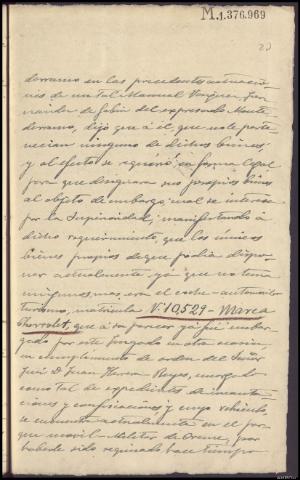 M.1.376.969
derramo en las precedentes actuacio-
nes de un tal Manuel Vazquez Fer-
nandez de Gabin del expresado Monte-
derramo, dijo que a él, que no le perte-
necian ninguno de dichos bienes;
y al efecto se requirió en forma legal
para que designara sus propios bienes
al objeto de embargo, cual se interesa
por la Superioridad; manifestando á
dicho requerimiento, que los únicos
bienes propios de que podia dispo-
ner actualmente, ya que no tenia
mas, era el coche automovil
turismo, matricula V-10,529 - Marca
Chevrolet, que á su parecer ya fué embar-
gado por este Juzgado en otra ocasion,
en cumplimiento de orden del Señor
Juez D. Juan Reyes, encargado
como tal de expedientes de incauta-
ciones y confiscaciones y cuyo vehiculo
se encuentra actualmente en el par-
que movil Militar de Orense, por
haberle sido requisado hace tiempo